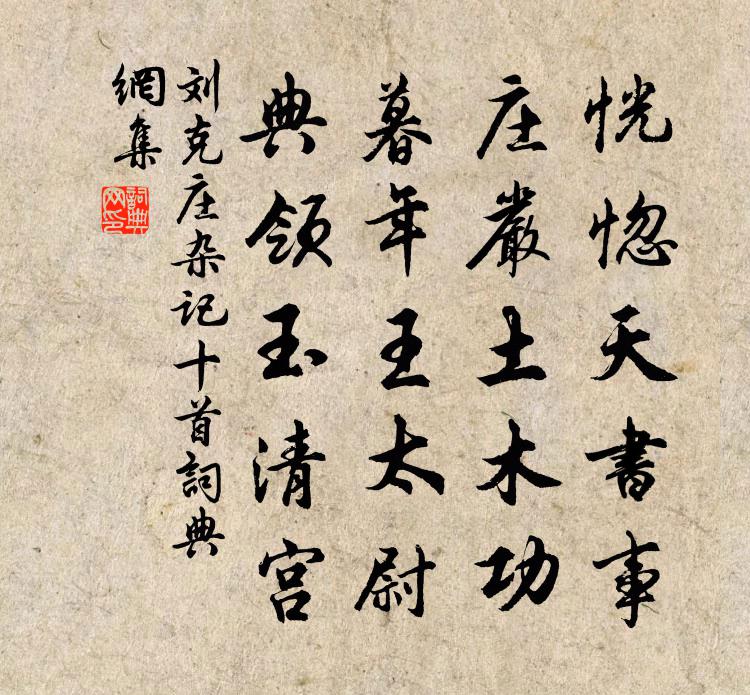 恍惚天書事
庄嚴土木功
暮年王太尉
典領玉清宫
刘克庄杂记十首詞典
網集
詞典
网印